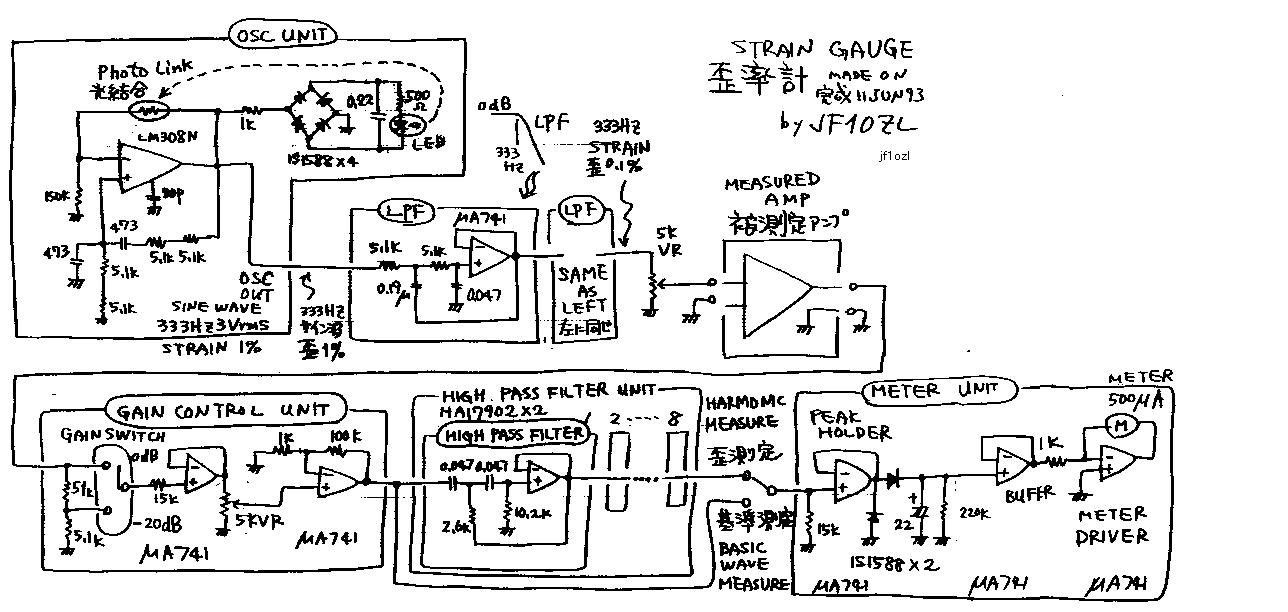 OSC UNIT
Photo Link
光結合
LM308N
1k
0.22
500
Ω
LED
1S1588×4
150K
30P
473
473
5.1k 5.1k
5.1k
5.1k
OSC
OUT
SINE WAVE
333HZ 3Vrms
STRAIN 1%
333HZ
サイン波
歪1%
0dB
LPF
333
HZ
333HZ
STRAIN
歪0.1%
STRAIN GAUGE
歪率計
MADE ON
完成 11JUN'93
by JF1OZL
jf1ozl
LPF
μA741
5.1k
5.1k
0.19μ
0.047
LPF
SAME
AS
LEFT
左に同じ
5k
VR
MEASURED
AMP
被測定アンプ
GAIN CONTROL UNIT
GAIN SWITCH
0dB
51k
5.1k
-20dB
15k
5KVR
μA741
1k
100k
μA741
HIGH PASS FILTER UNIT
HA17902×2
HIGH PASS FILTER
0.047 0.047
2.6k
10.2k
2 ---- 8
HARMONIC
MEASURE
歪測定
基準測定
BASIC
WAVE
MEASURE
METER UNIT
PEAK
HOLDER
15k
1S1588×2
μA741
22
220k
BUFFER
μA741
1K
METER
500μA
M
METER
DRIVER
μA741